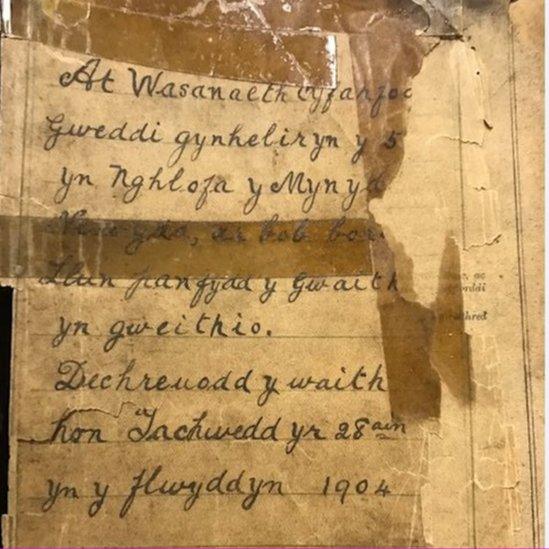 At Wasanaeth Cyfarfod
Gweddi gynheliryn y 5
yn Nghlofa y Mynydd
Newydd, ar bob bor
Llun panfydd y Gwaith
yn gweithio.
Dechreuodd y waith
hon Tachwedd yr 28ain
yn y flwyddyn 1904